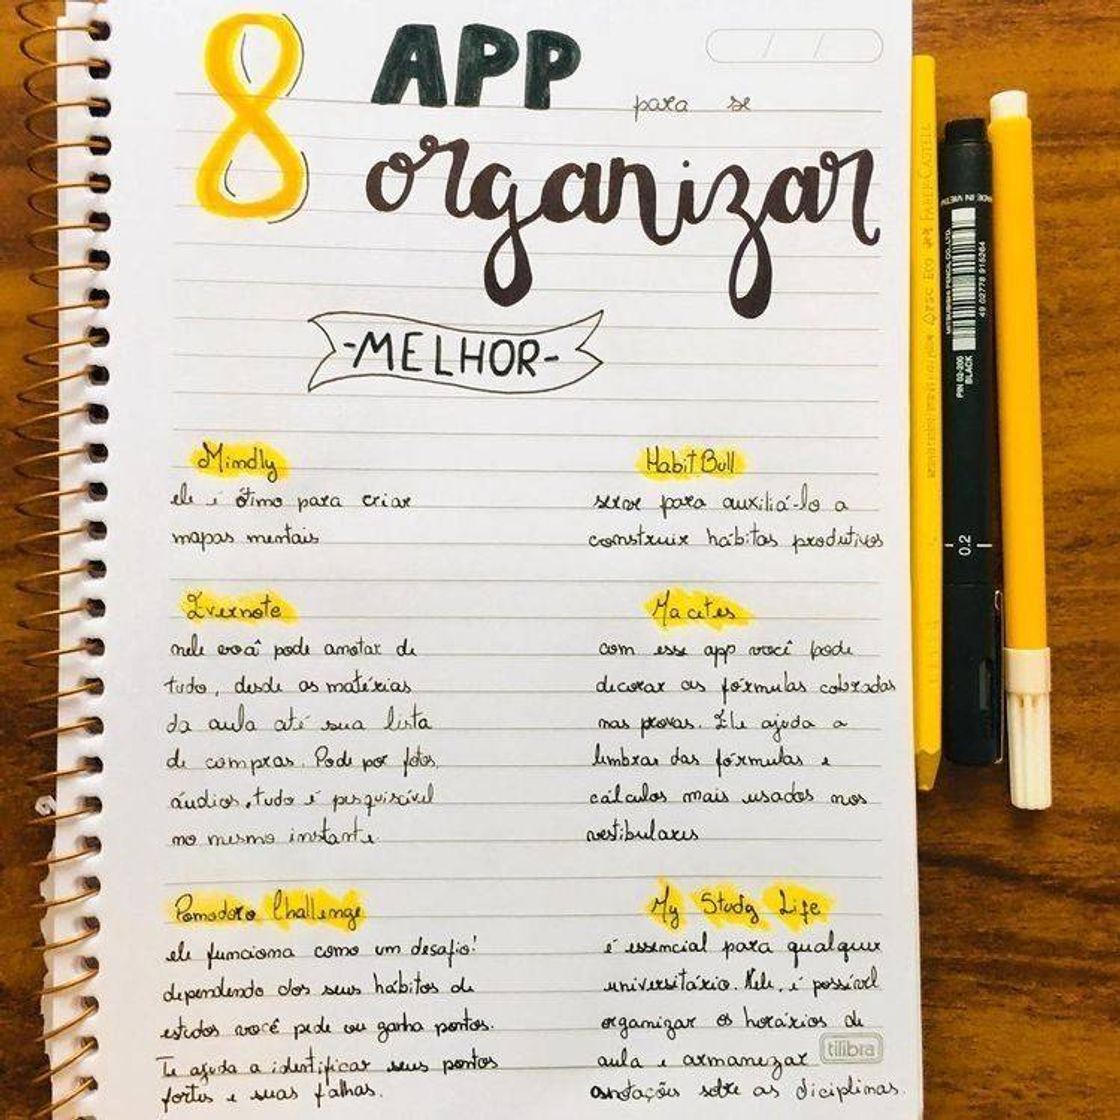 8 APP para se
organizar
-MELHOR-
Mindly
ele é ótimo para criar
mapas mentais
Evernote
nele você pode anotar de
tudo, desde as matérias
da aula até sua lista
de compras. Pode por fotos,
áudios, tudo é pesquisável
no mesmo instante
Pomodoro Challenge
ele funciona como um desafio!
dependendo dos seus hábitos de
estudos você pede ou ganha pontos.
Te ajuda a identificar seus pontos
fortes e suas falhas.
HabitBull
serve para auxiliá-lo a
construir hábitos produtivos
Macetes
com esse app você pode
decorar as fórmulas cobradas
nas provas. Ele ajuda a
lembrar das fórmulas e
cálculos mais usados nos
vestibulares
My Study Life
é essencial para qualquer
universitário. Nele, é possível
organizar os horários de
aula e armanezar
anotações sobre as diciplinas.
tilibra
FABER-CASTELL
MADE IN VIETNAM
MITSUBISHI PENCIL CO., LTD.
49 02778 915264
PIN 02-200
BLACK
0.2